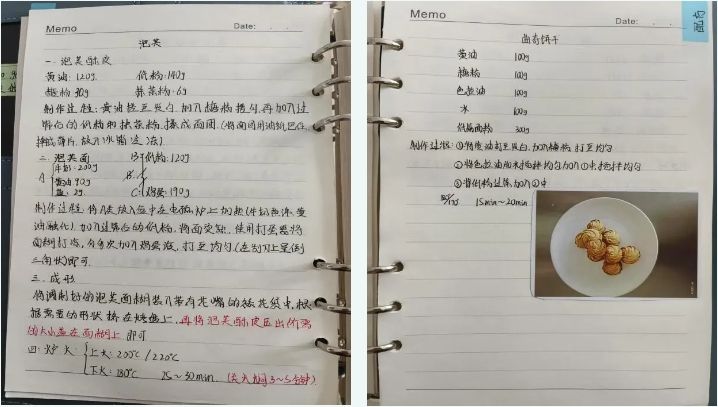 Memo
Date:
泡芙
一. 泡芙酥皮
黄油: 120g 低粉: 140g
糖粉 90g 抹茶粉: 6g
制作过程: 黄油搅至发白, 加入糖粉搅匀, 再加入过
筛后的低粉和抹茶粉, 揉成面团. (将面团用油纸包住,
擀成薄片, 放入冰箱冷冻)
二. 泡芙面 B 低粉: 120g
A 牛奶: 200g
黄油 90g
盐: 2g C: 鸡蛋: 190g
制作过程: 将A类放入盆中在电磁炉上加热(牛奶煮沸, 黄
油融化). 加入过筛后的低粉, 将面烫熟, 使用打蛋器将
面糊打散, 分多次加入鸡蛋液, 打至均匀(在刮刀上呈倒
三角状)即可.
三. 成形
将调制好的泡芙面糊装入带有花嘴的裱花袋中, 根
据需要的形状挤在烤盘上, 再将泡芙酥皮压出所需
的大小盖在面糊上 即可
四: 炉火: 上火: 200℃ / 220℃
下火: 180℃ 25~30min.
Memo
Date:
配方
曲奇饼干
黄油 100g
糖粉 100g
色拉油 100g
水 100g
低筋面粉 300g
制作过程: ①将黄油打至发白, 加入糖粉, 打至均匀
②将色拉油和水搅拌均匀加入①中搅拌均匀
③将低粉过筛, 加入②中
15min~20min